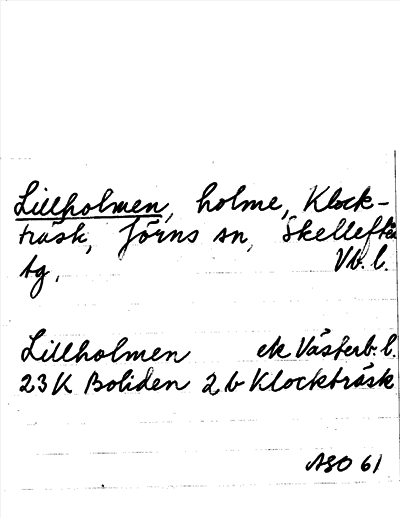 Lillholmen, holme, Klock-
träsk, Jörns sn, Skellefteå
tg, Vb. l.
Lillholmen ek Västerb. l.
23K Boliden 2b Klockträsk
ASO 61